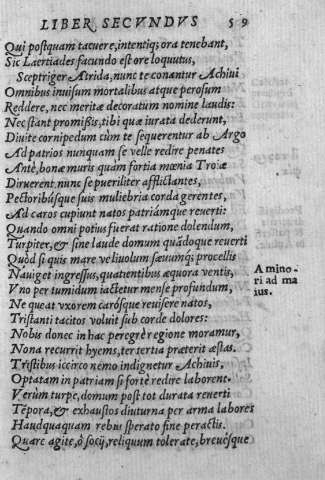 LIBER SECVNDVS 59
Qui postquam tacuere, intentiq; ora tenebant,
Sic Laertiades facundo est ore loquutus,
Sceptriger Atrida, nunc te conantur Achiui
Omnibus inuisum mortalibus atque perosum
Reddere, nec meritæ decoratum nomine laudis:
Nec stant promißis, tibi quæ iurata dederunt,
Diuite cornipedum cùm te sequerentur ab Argo
Ad patrios nunquam se velle redire penates
Antè, bonæ muris quàm fortia mœnia Troiæ
Diruerent, nunc se pueriliter afflictantes,
Pectoribúsque suis muliebria corda gerentes,
Ad caros cupiunt natos patriámque reuerti:
Quando omni potius fuerat ratione dolendum,
Turpiter, & sine laude domum quādoque reuerti
Quòd si quis mare veliuolum sæuumq; procellis
Nauiget ingressus, quatientibus æquora ventis,
Vno per tumidum iactetur mense profundum,
Ne queat vxorem carósque reuisere natos,
Tristanti tacitos voluit sub corde dolores:
Nobis donec in hac peregrè regione moramur,
Nona recurrit hyems, ter tertia præterit æstas.
Tristibus iccirco nemo indignetur Achiuis,
Optatam in patriam si fortè redire laborent.
Verùm turpe, domum post tot durata reuerti
Tēpora, & exhaustos diuturna per arma labores
Haudquaquam rebus sperato fine peractis.
Quare agite, ô socij, reliquum tolerate, breuésque
A mino-
ri ad ma
ius.